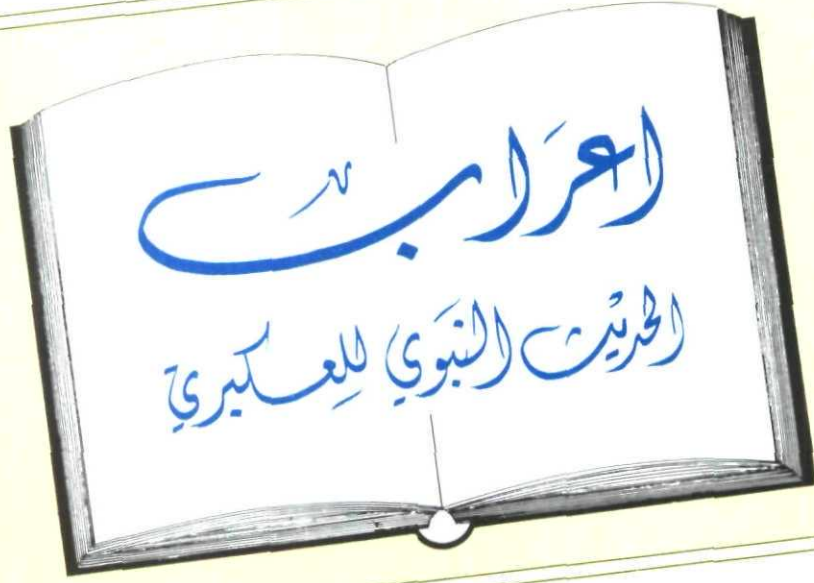 اعرَاب
الحديْث النبَوي للِعكبري